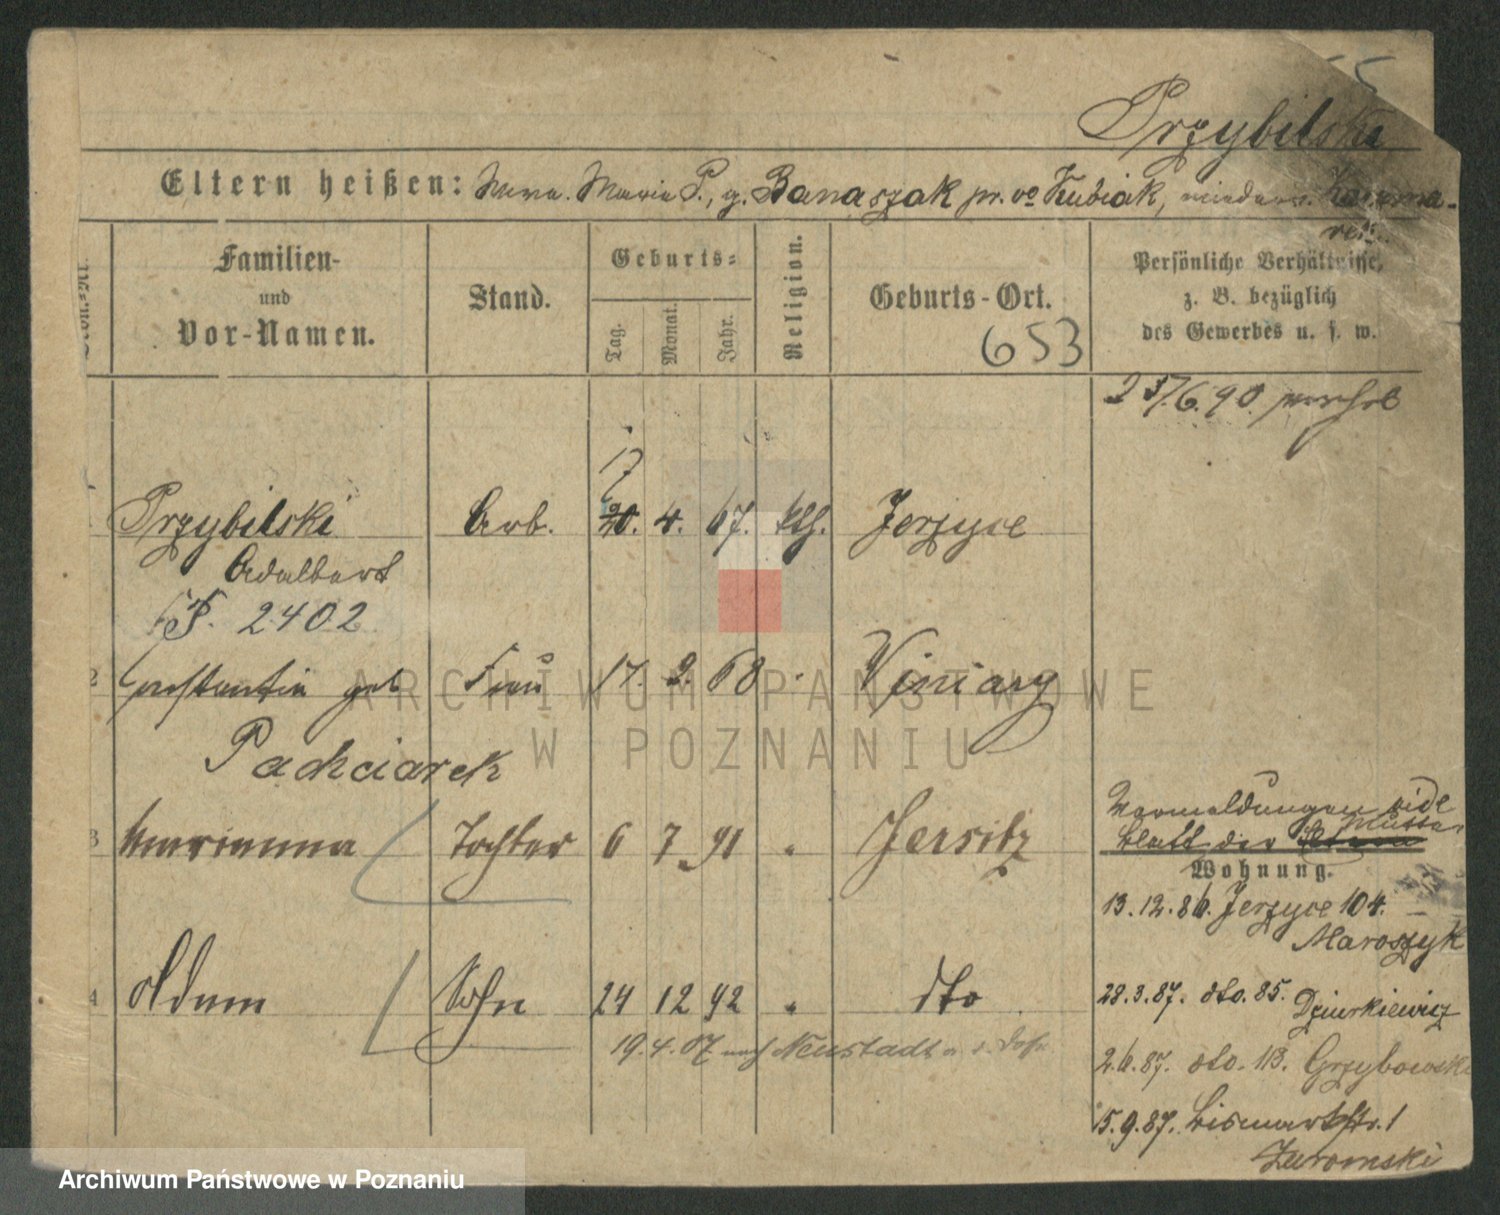 Przybilski
Eltern heißen: Marie P., g. Banaszak pr. vo Kubiak,
Familien-
und
Vor-Namen.
Stand.
Geburts-
Tag.
Monat.
Jahr.
Religion.
Geburts-Ort.
653
Persönliche Verhältnisse,
z. B. bezüglich
des Gewerbes u. s. w.
17
Przybilski Arb. 20. 4. 67. kth. Jerzyce
Adalbert
2402
2 Constantia geb. Frau 17. 2. 68 Winiary
Pachciarek
3 Marianna Tochter 6 7 91 " Jersitz
4 Adam Sohn 24 12 92 " dto
19.4.07 nach Neustadt
Vermeldungen vide
Blatt der Mutter
Wohnung.
13.12.86. Jerzyce 104.
Maroszyk
28.3.87. dto. 85.
Dziurkiewicz
2.6.87. dto. 113. Grzybowski
5.9.87. Bismarkstr. 1
Zuromski
ARCHIWUM PAŃSTWOWE
W POZNANIU
Archiwum Państwowe w Poznaniu